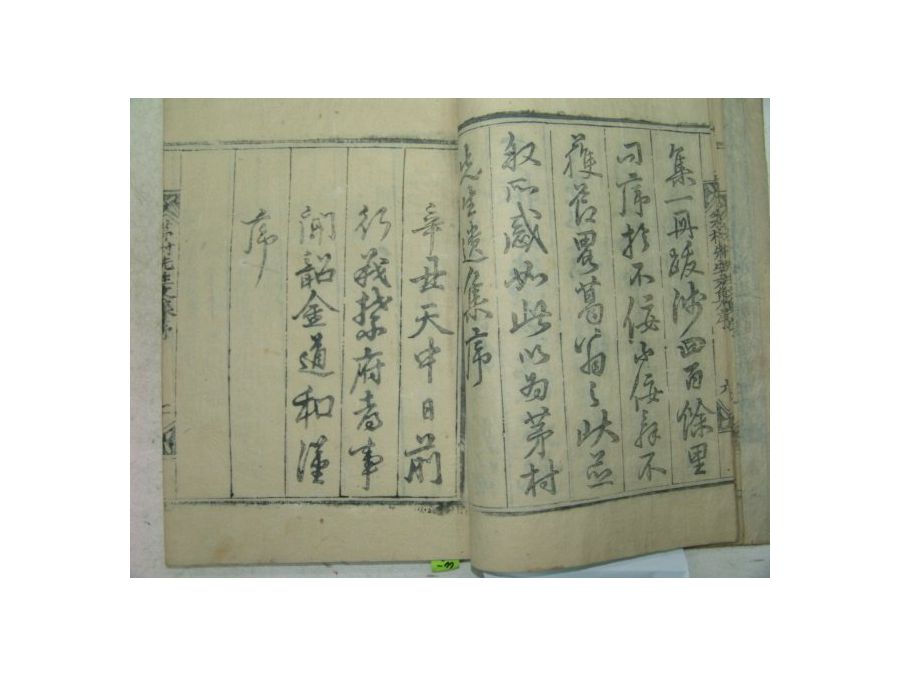 集一冊跋涉四百餘里
問序於不佞不佞辭不
獲茗翁之
敍所感如此以爲茅村
先生遺集序
辛丑天中日前
行義禁府都事
聞韶金道和謹
序